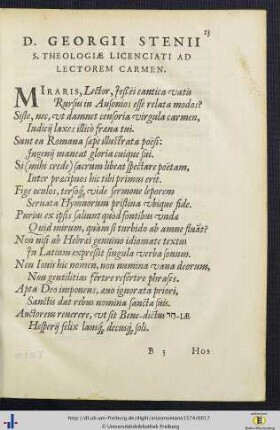 23
D. GEORGII STENII
S. THEOLOGIÆ LICENCIATI AD
LECTOREM CARMEN.
MIRARIS, Lector, Jessei cantica vatis
Rursus in Ausonios esse relata modos?
Siste, nec, ut damnet censoria virgula carmen,
Indicij laxes illicò frena tui.
Sunt ea Romana sæpe illustrata poësi:
Ingenij maneat gloria cuique sui.
Si (mihi crede) sacrum libeat spectare poëtam,
Inter præcipuos hic tibi primus erit.
Fige oculos, tersoq́, vide sermone leporem
Servata Hymnorum pristina ubique fide.
Purius ex ipsis saliunt quòd fontibus unda
Quid mirum, quàm si turbido ab amne fluāt?
Non nisi ab Hebræi genuino idiomate textus
In Latium expressit singula verba sonum.
Non Iovis hic nomen, non numina vana deorum,
Non gentilitias fertve refertve phrases.
Apta Deo imponens, avo ignorata priori,
Sanctis dat rebus nomina sancta suis.
Auctorem reverere, ut sit Bene-dictus
Hesperij felix lausq́, decusq́, soli.
B 3 Hos
http://dl.ub.uni-freiburg.de/diglit/ariasmontano1574/0017
© Universitätsbibliothek Freiburg